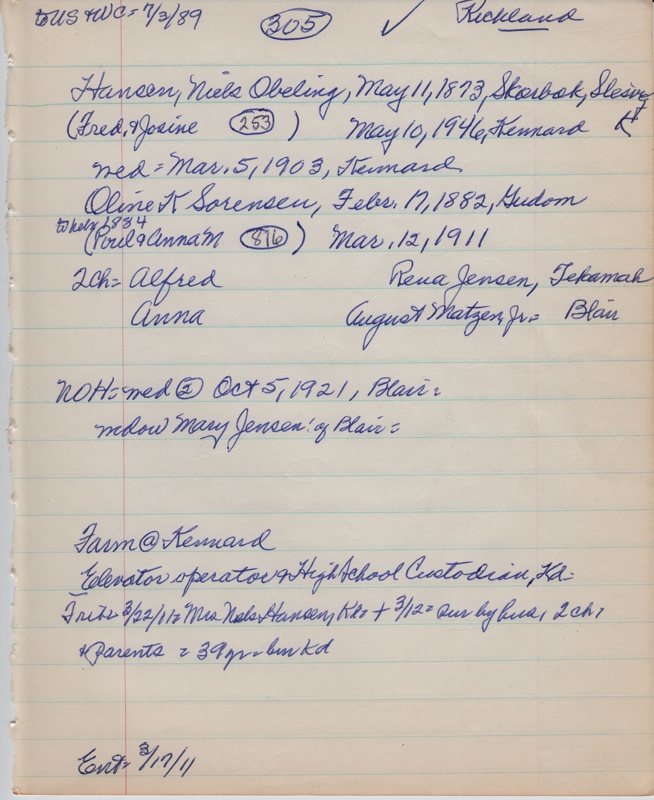 to US & WC = 7/3/89 305 ✓ Richland
Hansen, Niels Obeling, May 11, 1873, Skorbok, Slesvig
(Fred, & Josine 253 ) May 10, 1946, Kennard K
med = Mar. 5, 1903, Kennard
Oline K Sorensen, Febr. 17, 1882, Gudom
to Nebr 1884
(Poul & Anna M 876 ) Mar. 12, 1911
2ch = Alfred Rena Jensen, Tekamah
Anna August Matzen, Jr. = Blair
NOH = med ② Oct 5, 1921, Blair =
Mary Jensen of Blair =
Farm @ Kennard
Elevator operator & High School Custodian, Kd =
3/22/11 = Mrs Nels Hansen, + 3/12 = sur by hus, 2 ch,
& Parents = 39 yr = bur Kd
3/17/11